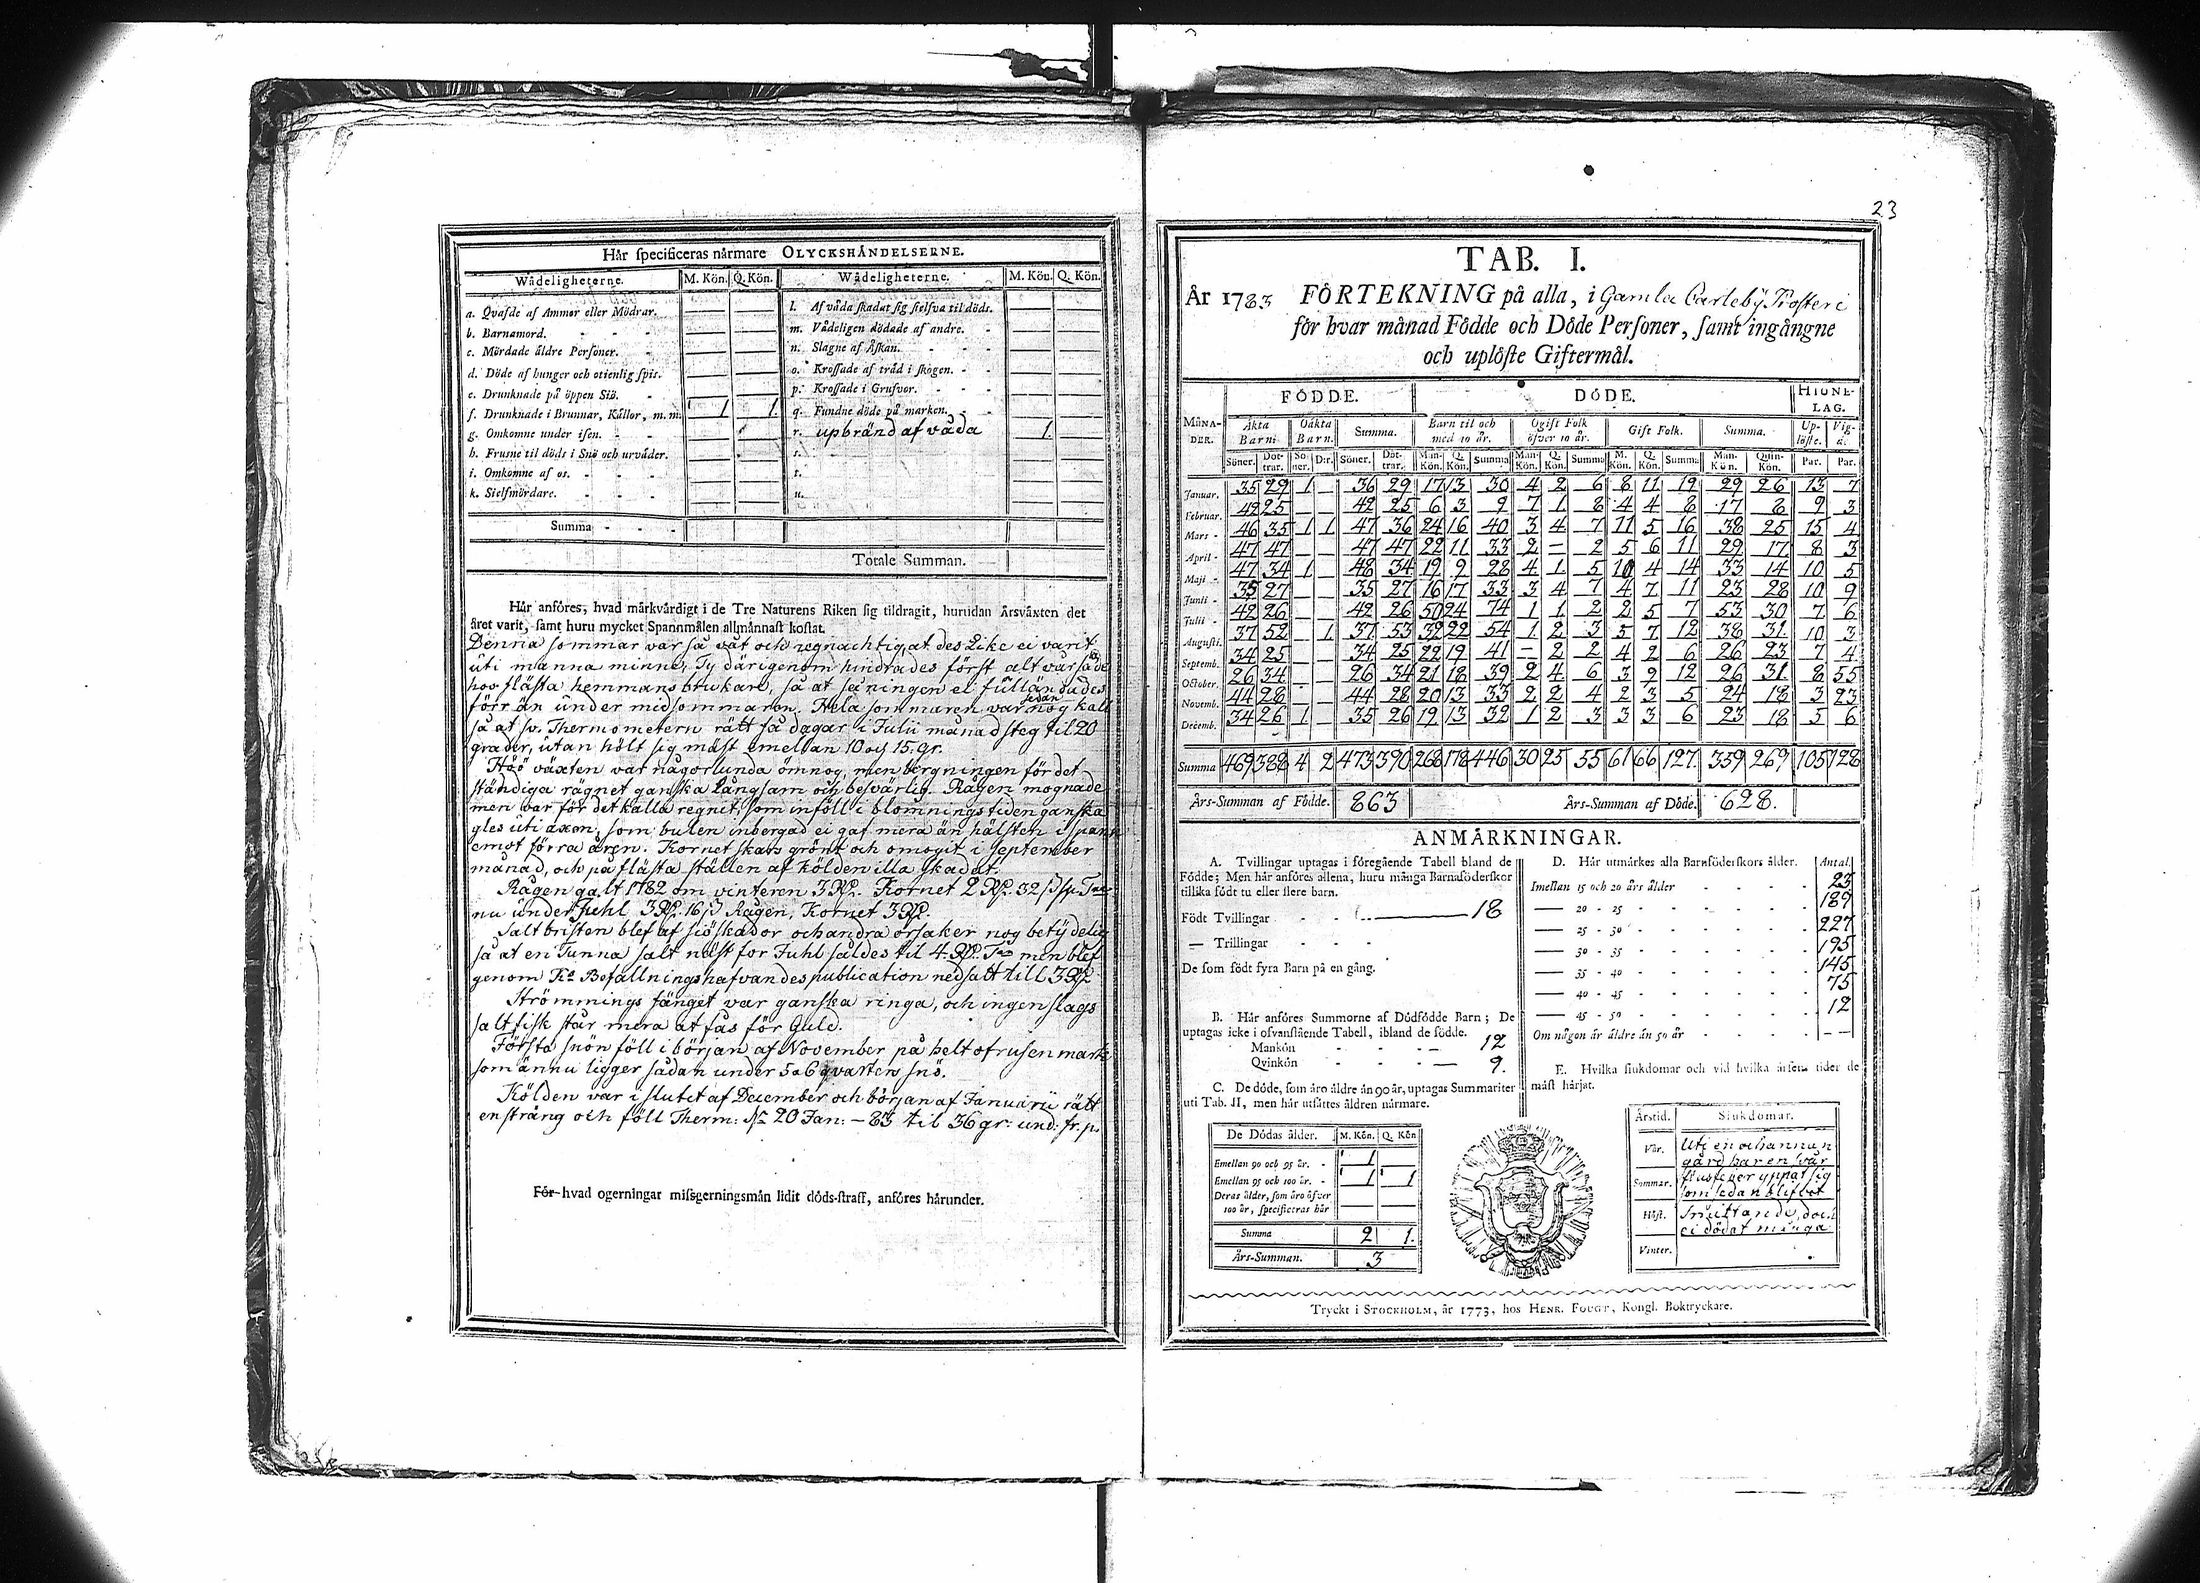 Här specificeras närmare OLYCKSHÄNDELSERNE.
Wådeligheterne. M. Kön. Q. Kön. Wådeligheterne. M. Kön. Q. Kön.
a. Qvafde af Ammor eller Mödrar. — — l. Af våda skadat sig sielfva til döds. — —
b. Barnamord. — — m. Vådeligen dödade af andre. — —
c. Mördade äldre Personer. — — n. Slagne af Åskan. — —
d. Döde af hunger och otienlig spis. — — o. Krossade af träd i skogen. — —
e. Drunknade på öppen Siö. — — p. Krossade i Grufvor. — —
f. Drunknade i Brunnar, Källor, m. m. 1 1. q. Fundne döde på marken. — —
g. Omkomne under isen. — — r. upbränd af våda 1. —
h. Frusne til döds i Snö och urväder. — — s.
i. Omkomne af os. — — t.
k. Sielfmördare. — — u.
Summa
Totale Summan.
Här anföres, hvad märkvärdigt i de Tre Naturens Riken sig tildragit, hurudan Årsväxten det
året varit, samt huru mycket Spannmålen allmännast kostat.
Denna sommar var så våt och regnachtig, at des Like ei varit
uti manna minne, Ty därigenom hindrades först alt vårsäde
hos flästa hemmans brukare, så at såningen ei fulländades
förr än under midsommaren. Hela sommaren var sedan nog kall
så at sv. Thermometern rätt få dagar i Julii månad steg til 20
grader, utan hölt sig mäst emellan 10 och 15. gr.
Höö växten var någorlunda ömnog, men bergningen för det
ständiga rägnet ganska långsam och besvärlig. Rågen mognade
men var för det kalla regnit, som inföll i blomningstiden ganska
gles uti axen, som bulen inbergad ei gaf mera än hälften i spann
emot förra åren. Kornet skars grönt och omogit i September
månad, och på flästa ställen af kölden illa skadat.
Rågen galt 1782 om vinteren 3 Rd. Kornet 2 Rd. 32 ß sp. Tna
nu under Juhl 3 Rd. 16 ß Rågen, Kornet 3 Rd.
Saltbristen blef af siöskador och andra orsaker nog betydelig
så at en Tunna salt näst för Juhl såldes til 4 Rd. Tna men blef
genom Ko Befallningshafvandes publication nedsatt till 3 Rd
Strömmings fänget var ganska ringa, och ingen slags
saltfisk står mera at fås för Guld.
Första snön föll i början af November på helt ofrusen mark
som ännu ligger sådan under 5 a 6 qvarters snö.
Kölden var i slutet af December och början af Januarii rätt
en sträng och föll Therm: 20 Jan: – 83 til 36 gr: und: fr. p.
För hvad ogerningar missgerningsmän lidit döds-straff, anföres härunder.
23
TAB. I.
År 1783 FÖRTEKNING på alla, i Gamla Carleby Prosteri
för hvar månad Födde och Döde Personer, samt ingångne
och uplöste Giftermål.
FÖDDE. DÖDE. HIONE-LAG.
MÅNA-DER. Äkta Barn. Oäkta Barn. Summa. Barn til och med 10 år. Ogift Folk öfver 10 år. Gift Folk. Summa. Up-löste. Vig-de.
Söner. Döt-trar. Sö-ner. D:r. Söner. Döt-trar. Man-Kön. Q. Kön. Summa Man-Kön. Q. Kön. Summa M. Kön. Q. Kön. Summa Man-Kön. Quin-Kön. Par. Par.
Januar. 35 29 1 — 36 29 17 13 30 4 2 6 8 11 19 29 26 13 7
Februar. 42 25 — — 42 25 6 3 9 7 1 8 4 4 8 17 8 9 3
Mars 46 35 1 1 47 36 24 16 40 3 4 7 11 5 16 38 25 15 4
April 47 47 — — 47 47 22 11 33 2 — 2 5 6 11 29 17 8 3
Maji 47 34 1 — 48 34 19 9 28 4 1 5 10 4 14 33 14 10 5
Junii 35 27 — — 35 27 16 17 33 3 4 7 4 7 11 23 28 10 9
Julii 42 26 — — 42 26 50 24 74 1 1 2 2 5 7 53 30 7 6
Augusti. 37 52 — 1 37 53 32 22 54 1 2 3 5 7 12 38 31 10 3
Septemb. 34 25 — — 34 25 22 19 41 — 2 2 4 2 6 26 23 7 4
October. 26 34 — — 26 34 21 18 39 2 4 6 3 9 12 26 31 8 55
Novemb. 44 28 — — 44 28 20 13 33 2 2 4 2 3 5 24 18 3 23
Decemb. 34 26 1 — 35 26 19 13 32 1 2 3 3 3 6 23 18 5 6
Summa 469 388 4 2 473 390 268 178 446 30 25 55 61 66 127. 359 269 105 128
Års-Summan af Födde. 863 Års-Summan af Döde. 628.
ANMÄRKNINGAR.
A. Tvillingar uptagas i föregående Tabell bland de
Födde; Men här anföres allena, huru många Barnaföderskor
tillika födt tu eller flere barn.
Födt Tvillingar — 18
— Trillingar
De som födt fyra Barn på en gång.
B. Här anföres Summorne af Dödfödde Barn; De
uptagas icke i ofvanstående Tabell, ibland de födde.
Mankön — 12
Qvinkön — 9.
C. De döde, som äro äldre än 90 år, uptagas Summariter
uti Tab. II, men här utsättes åldren närmare.
De Dödas ålder. M. Kön. Q. Kön
Emellan 90 och 95 år. 1 —
Emellan 95 och 100 år. 1 1
Deras ålder, som äro öfver
100 år, specificeras här — —
Summa 2 1.
Års-Summan. 3
D. Här utmärkes alla Barnföderskors ålder. Antal.
Imellan 15 och 20 års ålder 23
— 20 - 25 189
— 25 - 30 227
— 30 - 35 195
— 35 - 40 145
— 40 - 45 75
— 45 - 50 12
Om någon är äldre än 50 år — —
E. Hvilka siukdomar och vid hvilka årsens tider de
mäst härjat.
Årstid. Siukdomar.
Vår. Uti en och annan
gård har en svår
Sommar. flussfeber yppat sig
som sedan blifvet
Höst. Smittande, doch
ei dödat många
Vinter.
Tryckt i STOCKHOLM, år 1773, hos HENR. FOUGT, Kongl. Boktryckare.